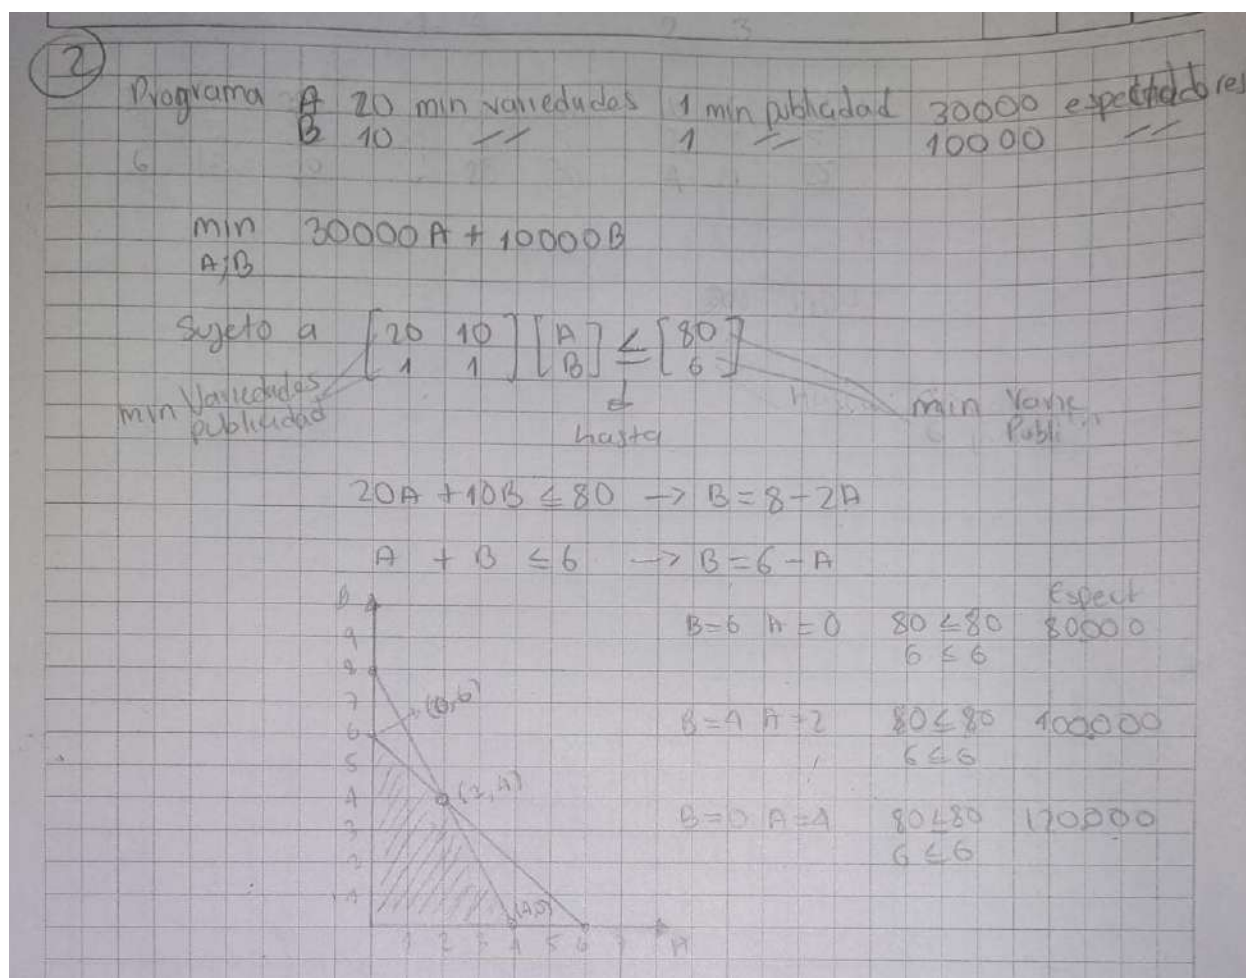 2
Programa A 20 min variedades 1 min publicidad 30000 espectadores
B 10 // 1 // 10000 //
6
min 30000A + 10000B
A;B
Sujeto a [20 10] [A] ≤ [80]
[1 1] [B] [6]
min Variedades publicidad
hasta
min Varie Publi
20A + 10B ≤ 80 → B = 8 - 2A
A + B ≤ 6 → B = 6 - A
Espect
B=6 A=0 80 ≤ 80 80000
6 ≤ 6
B=4 A=2 80 ≤ 80 100000
6 ≤ 6
B=0 A=4 80 ≤ 80 120000
6 ≤ 6
B
9
8
7 (0,6)
6
5
4 (2,4)
3
2
1 (4,0)
1 2 3 4 5 6 7 A